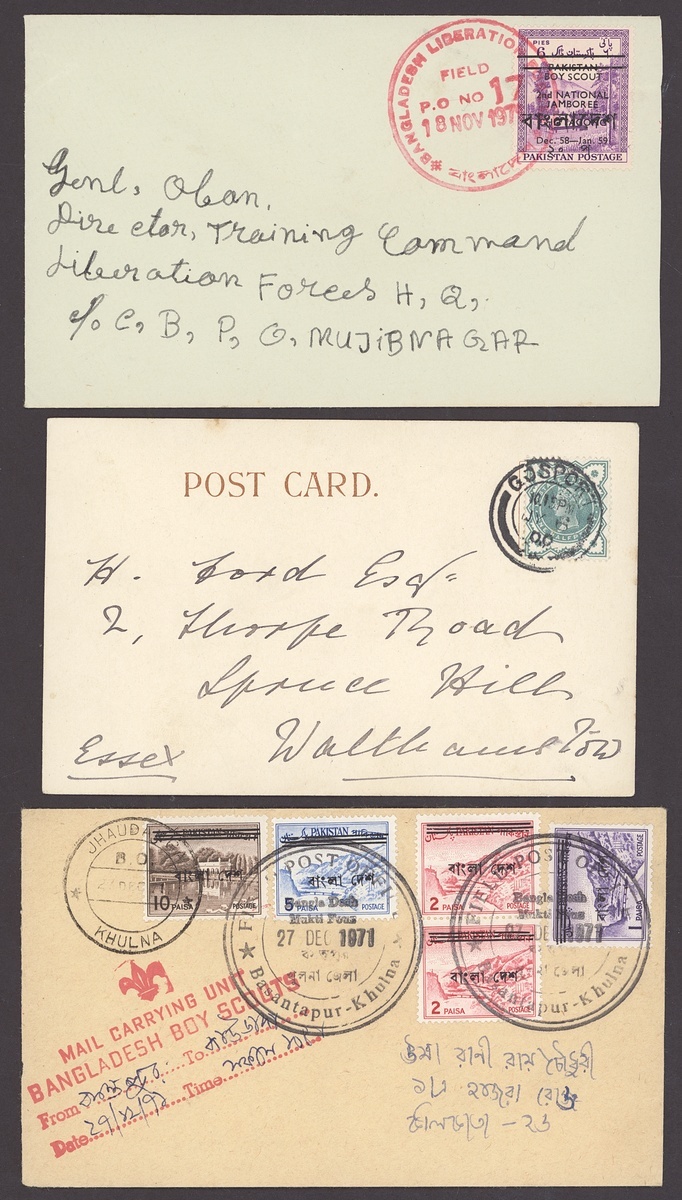 BANGLADESH LIBERATION
FIELD
P.O NO 17
18 NOV 197
PIES
6
PAKISTAN
BOY SCOUT
2nd NATIONAL
JAMBOREE
বাংলাদেশ
Dec. 58—Jan. 59
PAKISTAN POSTAGE
Genl, Oban,
Director, Training Command
Liberation Forces H, Q,.
c/o C, B, P, O, MUJiBNAGAR
POST CARD.
GOSPORT
H. Ford Esqr
2, Thorpe Road
Spruce Hill
Walthamstow
Essex
JHAUDA
B.O
KHULNA
PAKISTAN
বাংলা দেশ
10 PAISA POSTAGE
PAKISTAN
বাংলা দেশ
5 PAISA POSTAGE
PAKISTAN
বাংলা দেশ
2 PAISA POSTAGE
বাংলা দেশ
2 PAISA POSTAGE
1 PAISA POSTAGE
FIELD POST O
Bangla Desh
Mukti Fouz
27 DEC 1971
খুলনা জেলা
Basantapur-Khulna
FIELD POST O
Bangla Desh
Mukti Fouz
27 DEC 1971
জেলা
Basantapur-Khulna
MAIL CARRYING UNIT
BANGLADESH BOY SCOUTS
From বসন্তপুর To
Date ২৭/১২/৭১ Time
উমা রানী রায় চৌধুরী
হাজরা রোড
কলিকাতা - ২৬